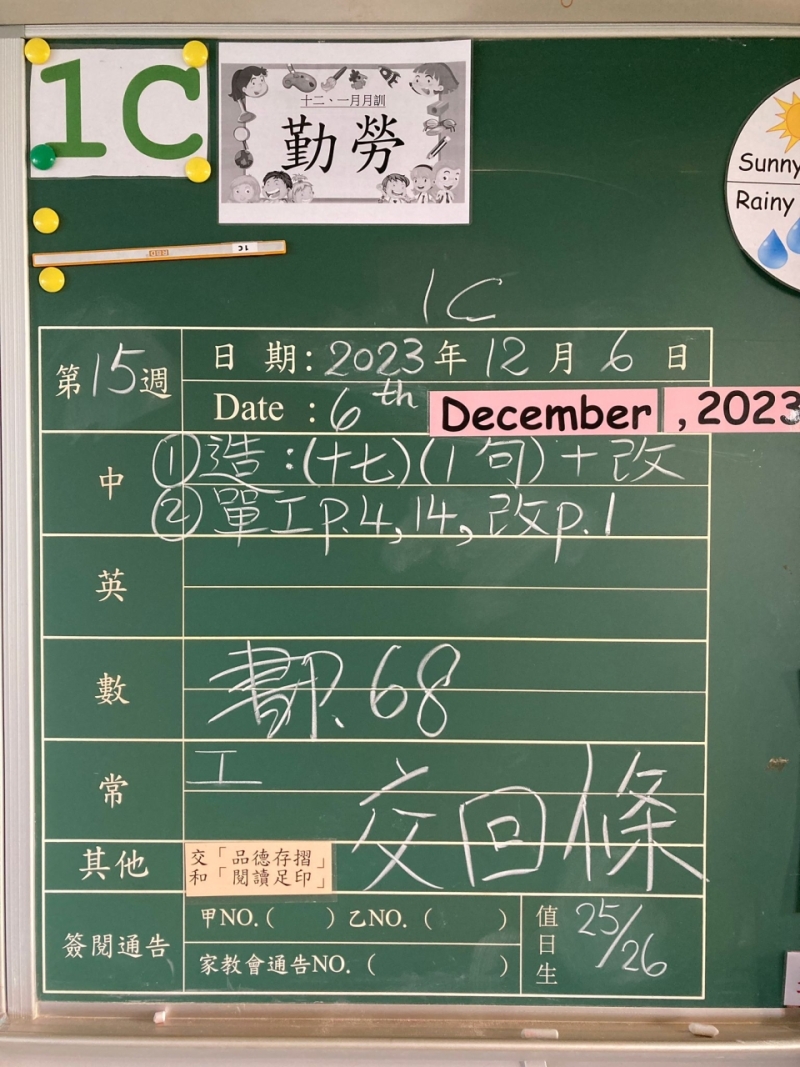 1C
十二、一月月訓
勤勞
Sunny
Rainy
1C
1C
第15週
日 期：2023年12月6日
Date : 6th December , 2023
中
①造：(十七)(1句)＋改
②單工p.4,14,改p.1
英
數
書P.68
常
工
交回條
其他
交「品德存摺」
和「閱讀足印」
簽閱通告
甲NO.( ) 乙NO.( )
家教會通告NO.( )
值日生
25/26